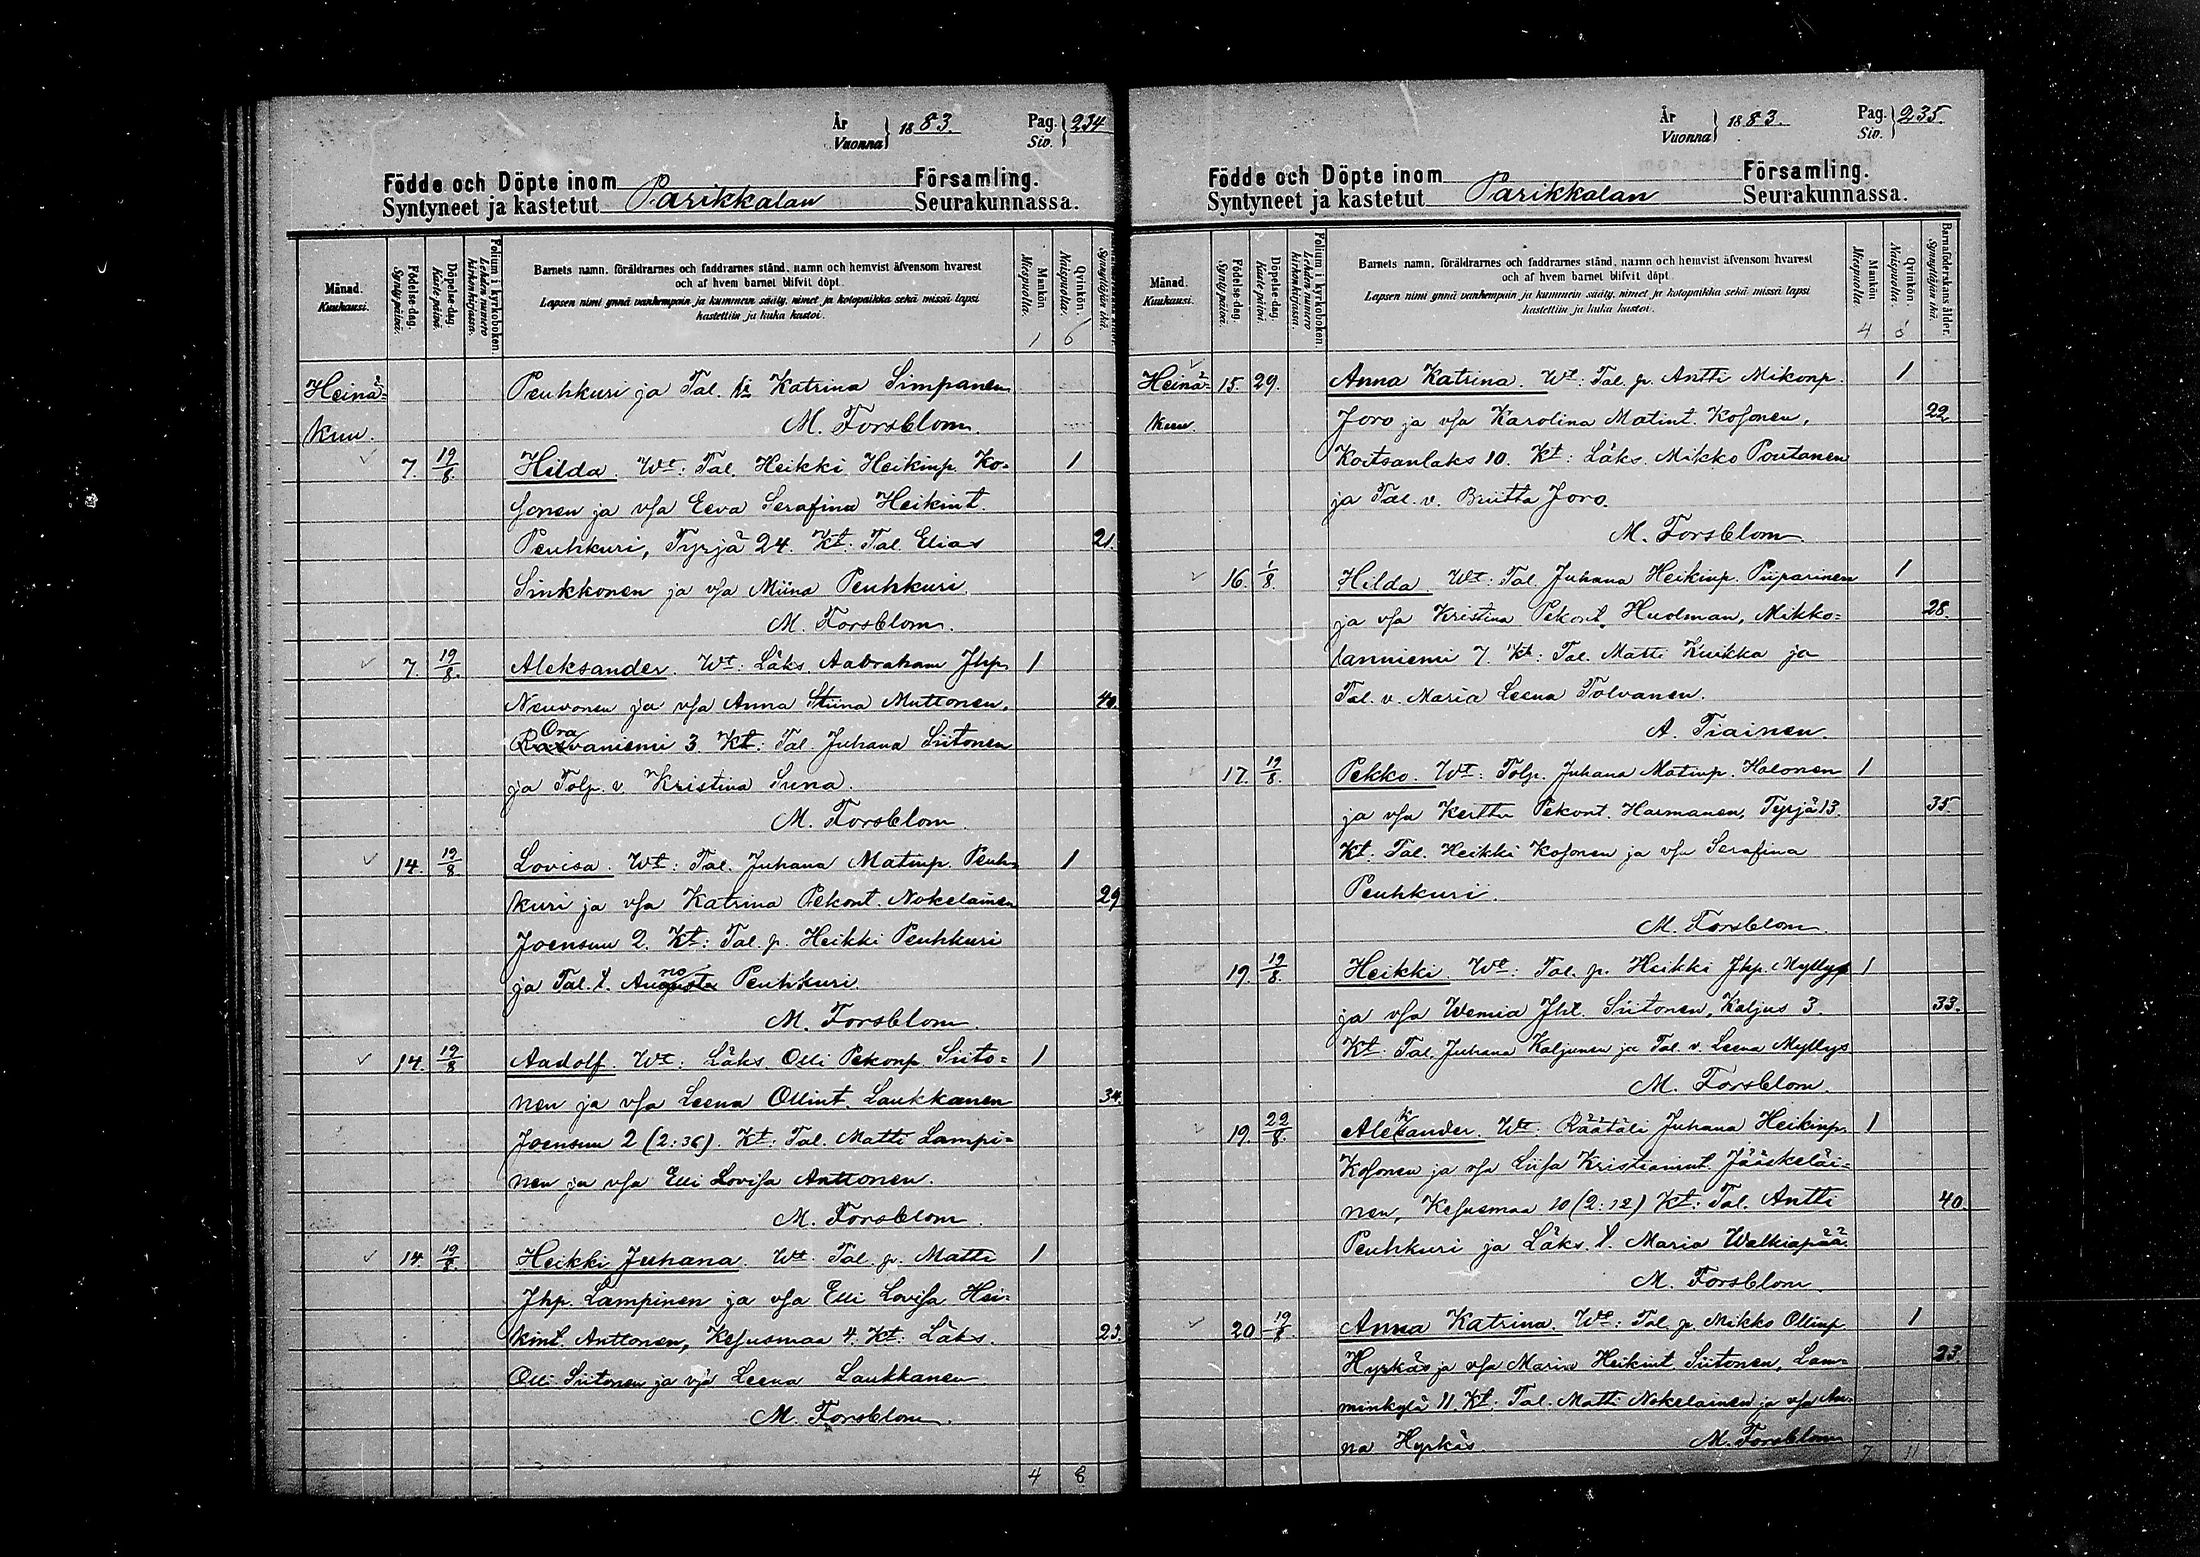 År
Vuonna } 1883.
Pag.
Siv. } 234
Födde och Döpte inom Parikkalan Församling.
Syntyneet ja kastetut Seurakunnassa.
Månad.
Kuukausi.
Födelse-dag.
Synty-päivä.
Döpelse-dag.
Kaste-päivä.
Folium i kyrkoboken.
Lehden numero kirkonkirjassa.
Barnets namn, föräldrarnes och faddrarnes stånd, namn och hemvist äfvensom hvarest
och af hvem barnet blifvit döpt.
Lapsen nimi ynnä vanhempain ja kummein sääty, nimet ja kotopaikka sekä missä lapsi
kastettiin ja kuka kastoi.
Mankön
Miespuolta.
Qvinkön.
Naispuolta.
1 6
Heinä= Peuhkuri ja Tal. Katrina Simpanen
kuu. M. Forsblom.
7. 19/8. Hilda. Wt: Tal. Heikki Heikinp. Ko= 1
sonen ja vsa Eeva Serafina Heikint.
Peuhkuri, Tyrjä 24. Kt: Tal. Elias 21.
Sinkkonen ja vsa Miina Peuhkuri.
M. Forsblom.
7. 19/8. Aleksander. Wt: Läks. Aabraham Jhp. 1
Neuvonen ja vsa Anna Stiina Muttonen, 40.
Oravaniemi 3. Kt: Tal. Juhana Siitonen
ja Tolp. v. Kristina Suna.
M. Forsblom.
14. 19/8 Lovisa. Wt: Tal. Juhana Matinp. Peuh= 1
kuri ja vsa Katrina Pekont. Nokelainen 29
Joensuu 2. Kt: Tal. p. Heikki Peuhkuri
ja Tal. t. Anna Peuhkuri.
M. Forsblom.
14. 19/8 Aadolf. Wt: Läks. Olli Pekonp. Siito= 1
nen ja vsa Leena Ollint. Laukkanen 34.
Joensuu 2 (2:36). Kt: Tal. Matti Lampi=
nen ja vsa Elli Lovisa Anttonen.
M. Forsblom.
14. 19/8. Heikki Juhana. Wt: Tal. p. Matti 1
Jhp. Lampinen ja vsa Elli Lovisa Hei=
kint. Anttonen, Kesusmaa 4. Kt: Läks. 23.
Olli Siitonen ja vsa Leena Laukkanen
M. Forsblom.
4 8
År
Vuonna } 1883.
Pag.
Siv. } 235.
Födde och Döpte inom Parikkalan Församling.
Syntyneet ja kastetut Seurakunnassa.
Månad.
Kuukausi.
Födelse-dag.
Synty-päivä.
Döpelse-dag.
Kaste-päivä.
Folium i kyrkoboken.
Lehden numero kirkonkirjassa.
Barnets namn, föräldrarnes och faddrarnes stånd, namn och hemvist äfvensom hvarest
och af hvem barnet blifvit döpt.
Lapsen nimi ynnä vanhempain ja kummein sääty, nimet ja kotopaikka sekä missä lapsi
kastettiin ja kuka kastoi.
Mankön
Miespuolta.
Qvinkön.
Naispuolta.
Barnaföderskans ålder.
Synnyttäjän ikä.
4
Heinä= 15. 29. Anna Katrina. Wt: Tal. p. Antti Mikonp. 1
kuu. Joro ja vsa Karolina Matint. Kosonen, 22
Koitsanlaks 10. Kt: Läks. Mikko Poutanen
ja Tal. v. Briitta Joro.
M. Forsblom.
16. 1/8. Hilda. Wt: Tal. Juhana Heikinp. Piiparinen 1
ja vsa Kristina Pekont. Hudman, Mikko= 28.
lanniemi 7. Kt: Tal. Matti Kuikka ja
Tal. v. Maria Leena Tolvanen.
A. Tiainen.
17. 19/8. Pekko. Wt: Tolp. Juhana Matinp. Halonen 1
ja vsa Kerttu Pekont. Harmanen, Tyrjä 13. 35.
Kt. Tal. Heikki Kosonen ja vsa Serafina
Peuhkuri.
M. Forsblom.
19. 19/8. Heikki. Wt: Tal. p. Heikki Jhp. Myllys 1
ja vsa Wemia Jht. Siitonen, Kaljus 3. 33.
Kt: Tal. Juhana Kaljunen ja Tal. v. Leena Myllys
M. Forsblom.
19. 22/8. Aleksander. Wt: Räätäli Juhana Heikinp. 1
Kosonen ja vsa Liisa Kristianint. Jääskeläi=
nen, Kesusmaa 10 (2:12) Kt: Tal. Antti 40.
Peuhkuri ja Läks. t. Maria Walkiapää.
M. Forsblom.
20 19/8. Anna Katrina. Wt: Tal. p. Mikko Ollinp. 1
Hyrkäs ja vsa Maria Heikint Siitonen, Lam= 23
minkylä 11. Kt: Tal. Matti Nokelainen ja vsa An=
na Hyrkäs. M. Forsblom
7 11